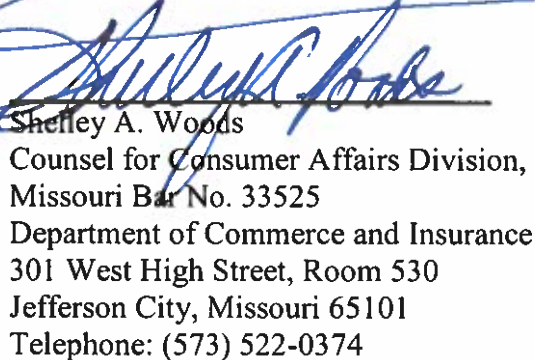 Shelley A. Woods
Shelley A. Woods
Counsel for Consumer Affairs Division,
Missouri Bar No. 33525
Department of Commerce and Insurance
301 West High Street, Room 530
Jefferson City, Missouri 65101
Telephone: (573) 522-0374